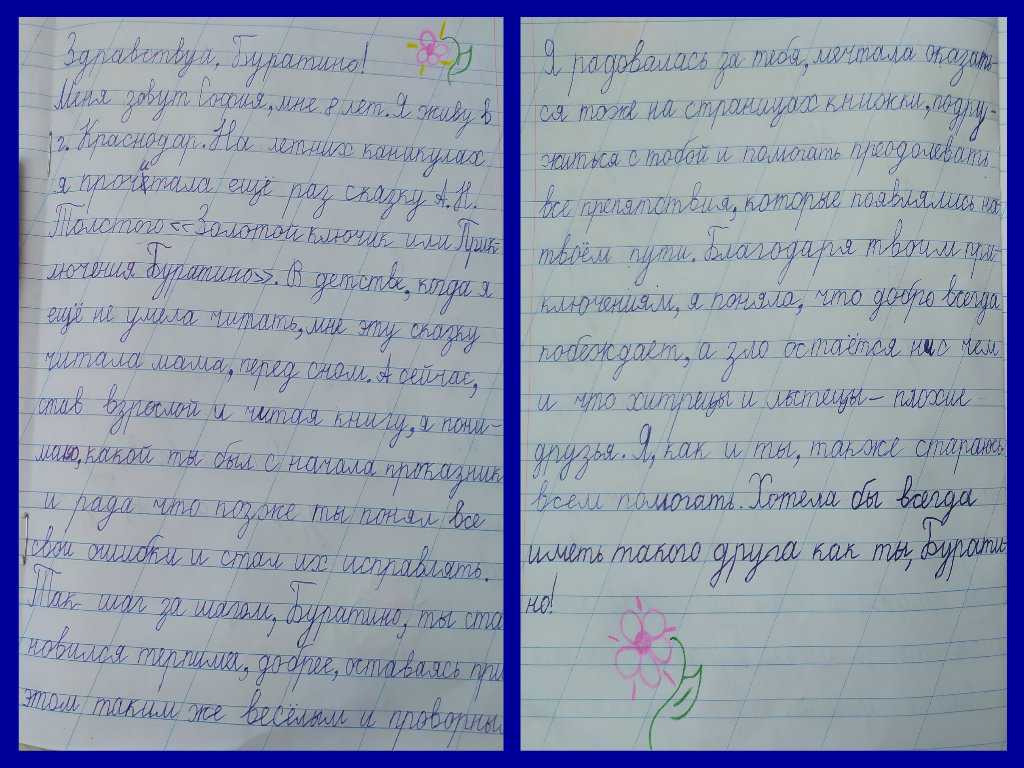 Здравствуа, Буратино!
Меня зовут София, мне 8 лет. Я живу в
г. Краснодар. На летних каникулах
я прочитала ещё раз сказку А.Н.
Толстого <<Золотой ключик или Прик-
лючения Буратино>>. В детстве, когда я
ещё не умела читать, мне эту сказку
читала мама, перед сном. А сейчас,
став взрослой и читая книгу, я пони-
маю, какой ты был с начала проказник
и рада что позже ты понял все
свои ошибки и стал их исправлять.
Так шаг за шагом, Буратино, ты ста
новился терпима, добрее, оставаясь при
этом таким же весёлым и проворным
Я радовалась за тебя, мечтала оказать-
ся тоже на страницах книжки, подру-
житься с тобой и помогать преодолевать
все препятствия, которые появлялись на
твоём пути. Благодаря твоим при-
ключениям, я поняла, что добро всегда
побеждает, а зло остаётся ни с чем
и что хитрецы и льстецы - плохие
друзья. Я, как и ты, также стараюсь
всем помогать. Хотела бы всегда
иметь такого друга как ты, Бурати-
но!